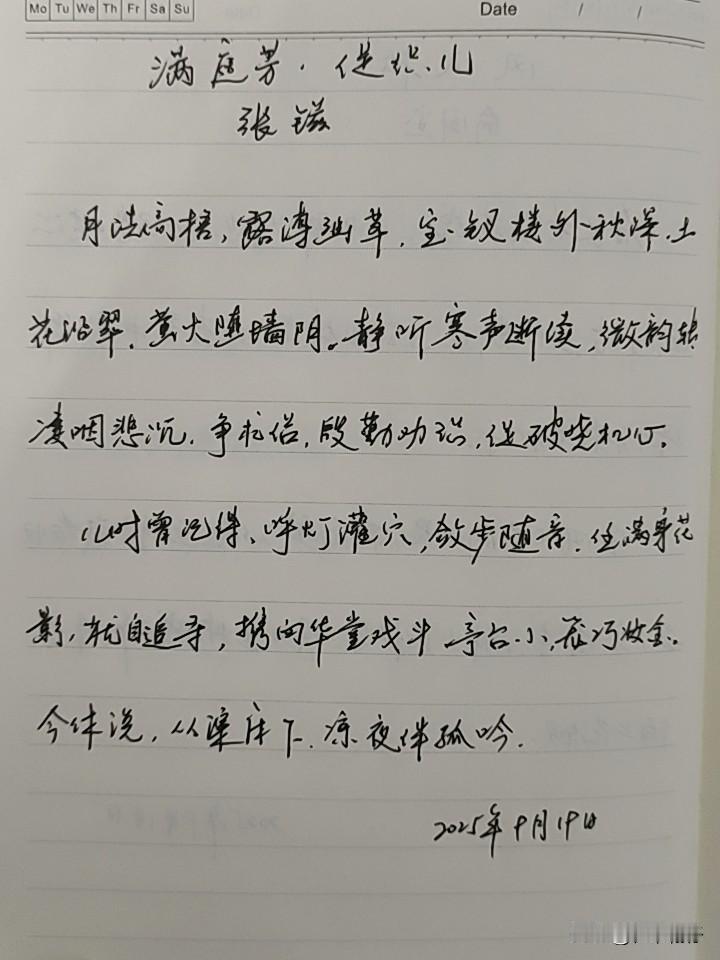 Mo Tu We Th Fr Sa Su Date / /
满庭芳·促织儿
张镃
月洗高梧，露漙幽草，宝钗楼外秋深。土
花沿翠，萤火坠墙阴。静听寒声断续，微韵转
凄咽悲沉。争求侣，殷勤劝织，促破晓机心。
儿时曾记得，呼灯灌穴，敛步随音。任满身花
影，犹自追寻，携向华堂戏斗，亭台小，笼巧妆金。
今休说，从渠床下，凉夜伴孤吟。
2025年9月19日